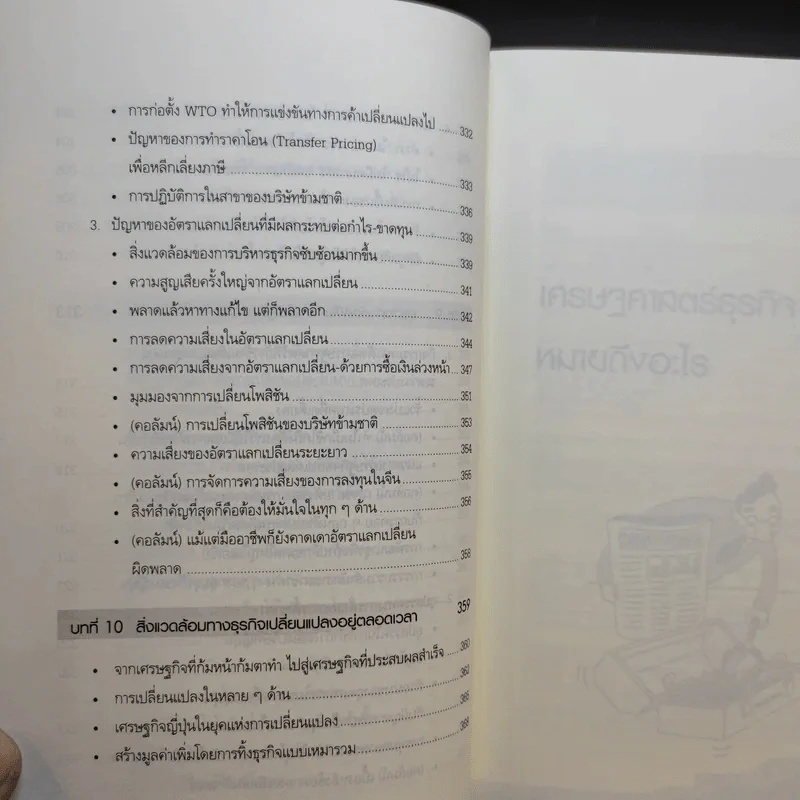 • การก่อตั้ง WTO ทำให้การแข่งขันทางการค้าเปลี่ยนแปลงไป ...... 332
• ปัญหาของการทำราคาโอน (Transfer Pricing)
เพื่อหลีกเลี่ยงภาษี ...... 333
• การปฏิบัติการในสาขาของบริษัทข้ามชาติ ...... 336
3. ปัญหาของอัตราแลกเปลี่ยนที่มีผลกระทบต่อกำไร-ขาดทุน ...... 339
• สิ่งแวดล้อมของการบริหารธุรกิจซับซ้อนมากขึ้น ...... 339
• ความสูญเสียครั้งใหญ่จากอัตราแลกเปลี่ยน ...... 341
• พลาดแล้วหาทางแก้ไข แต่ก็พลาดอีก ...... 342
• การลดความเสี่ยงในอัตราแลกเปลี่ยน ...... 344
• การลดความเสี่ยงจากอัตราแลกเปลี่ยน-ด้วยการซื้อเงินล่วงหน้า ... 347
• มุมมองจากการเปลี่ยนโพสิชัน ...... 351
• (คอลัมน์) การเปลี่ยนโพสิชันของบริษัทข้ามชาติ ...... 353
• ความเสี่ยงของอัตราแลกเปลี่ยนระยะยาว ...... 354
• (คอลัมน์) การจัดการความเสี่ยงของการลงทุนในจีน ...... 355
• สิ่งที่สำคัญที่สุดก็คือต้องให้มั่นใจในทุก ๆ ด้าน ...... 356
• (คอลัมน์) แม้แต่มืออาชีพก็ยังคาดเดาอัตราแลกเปลี่ยน
ผิดพลาด ...... 358
บทที่ 10 สิ่งแวดล้อมทางธุรกิจเปลี่ยนแปลงอยู่ตลอดเวลา 359
• จากเศรษฐกิจที่ก้มหน้าก้มตาทำ ไปสู่เศรษฐกิจที่ประสบผลสำเร็จ ... 360
• การเปลี่ยนแปลงในหลาย ๆ ด้าน ......
• เศรษฐกิจญี่ปุ่นในยุคแห่งการเปลี่ยนแปลง ...... 365
• สร้างมูลค่าเพิ่มโดยการทิ้งธุรกิจแบบเหมารวม ...... 368